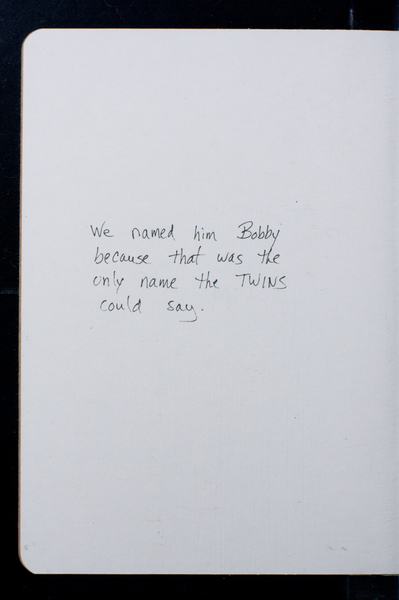 We named him Bobby
because that was the
only name the TWINS
could say.